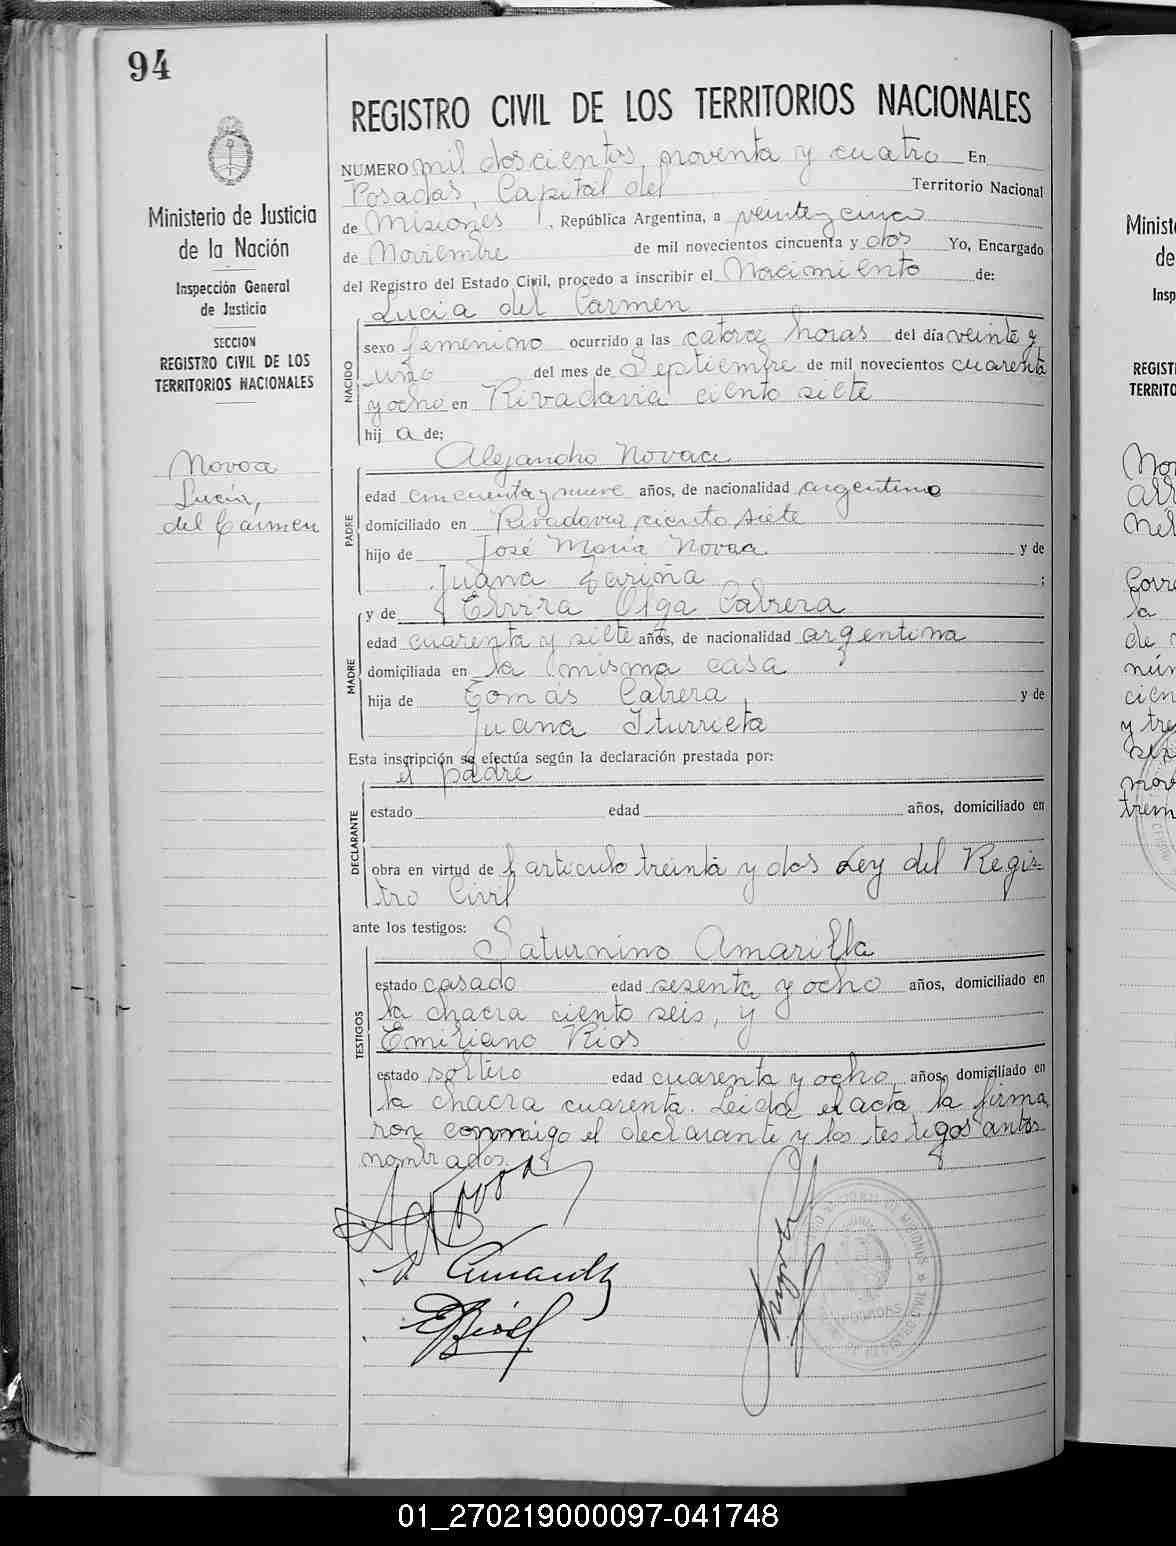 94
Ministerio de Justicia
de la Nación
Inspección General
de Justicia
SECCION
REGISTRO CIVIL DE LOS
TERRITORIOS NACIONALES
Novoa
Lucía,
del Carmen
REGISTRO CIVIL DE LOS TERRITORIOS NACIONALES
NUMERO mil doscientos noventa y cuatro En
Posadas, Capital del Territorio Nacional
de Misiones, República Argentina, a veinte y cinco
de Noviembre de mil novecientos cincuenta y dos Yo, Encargado
del Registro del Estado Civil, procedo a inscribir el Nacimiento de:
Lucia del Carmen
NACIDO
sexo femenino ocurrido a las catorce horas del día veinte y
uno del mes de Septiembre de mil novecientos cuarenta
y ocho en Rivadavia ciento siete
hij a de;
Alejandro Novoa
PADRE
edad cincuenta y nueve años, de nacionalidad argentino
domiciliado en Rivadavia ciento siete
hijo de José María Novoa y de
Juana Fariña ;
y de Elvira Olga Cabrera
MADRE
edad cuarenta y siete años, de nacionalidad argentina
domiciliada en la misma casa
hija de Tomás Cabrera y de
Juana Iturrieta
Esta inscripción se efectúa según la declaración prestada por:
el padre
DECLARANTE
estado edad años, domiciliado en
obra en virtud de l artículo treinta y dos Ley del Regis-
tro Civil
ante los testigos:
Saturnino Amarilla
TESTIGOS
estado casado edad sesenta y ocho años, domiciliado en
la chacra ciento seis, y
Emiliano Rios
estado soltero edad cuarenta y ocho años, domiciliado en
la chacra cuarenta. Leida el acta la firma
ron conmigo el declarante y los testigos antes
nombrados.
POSADAS
Minist
de
Insp
REGIST
TERRITO
de
cien
y tre
01_270219000097-041748